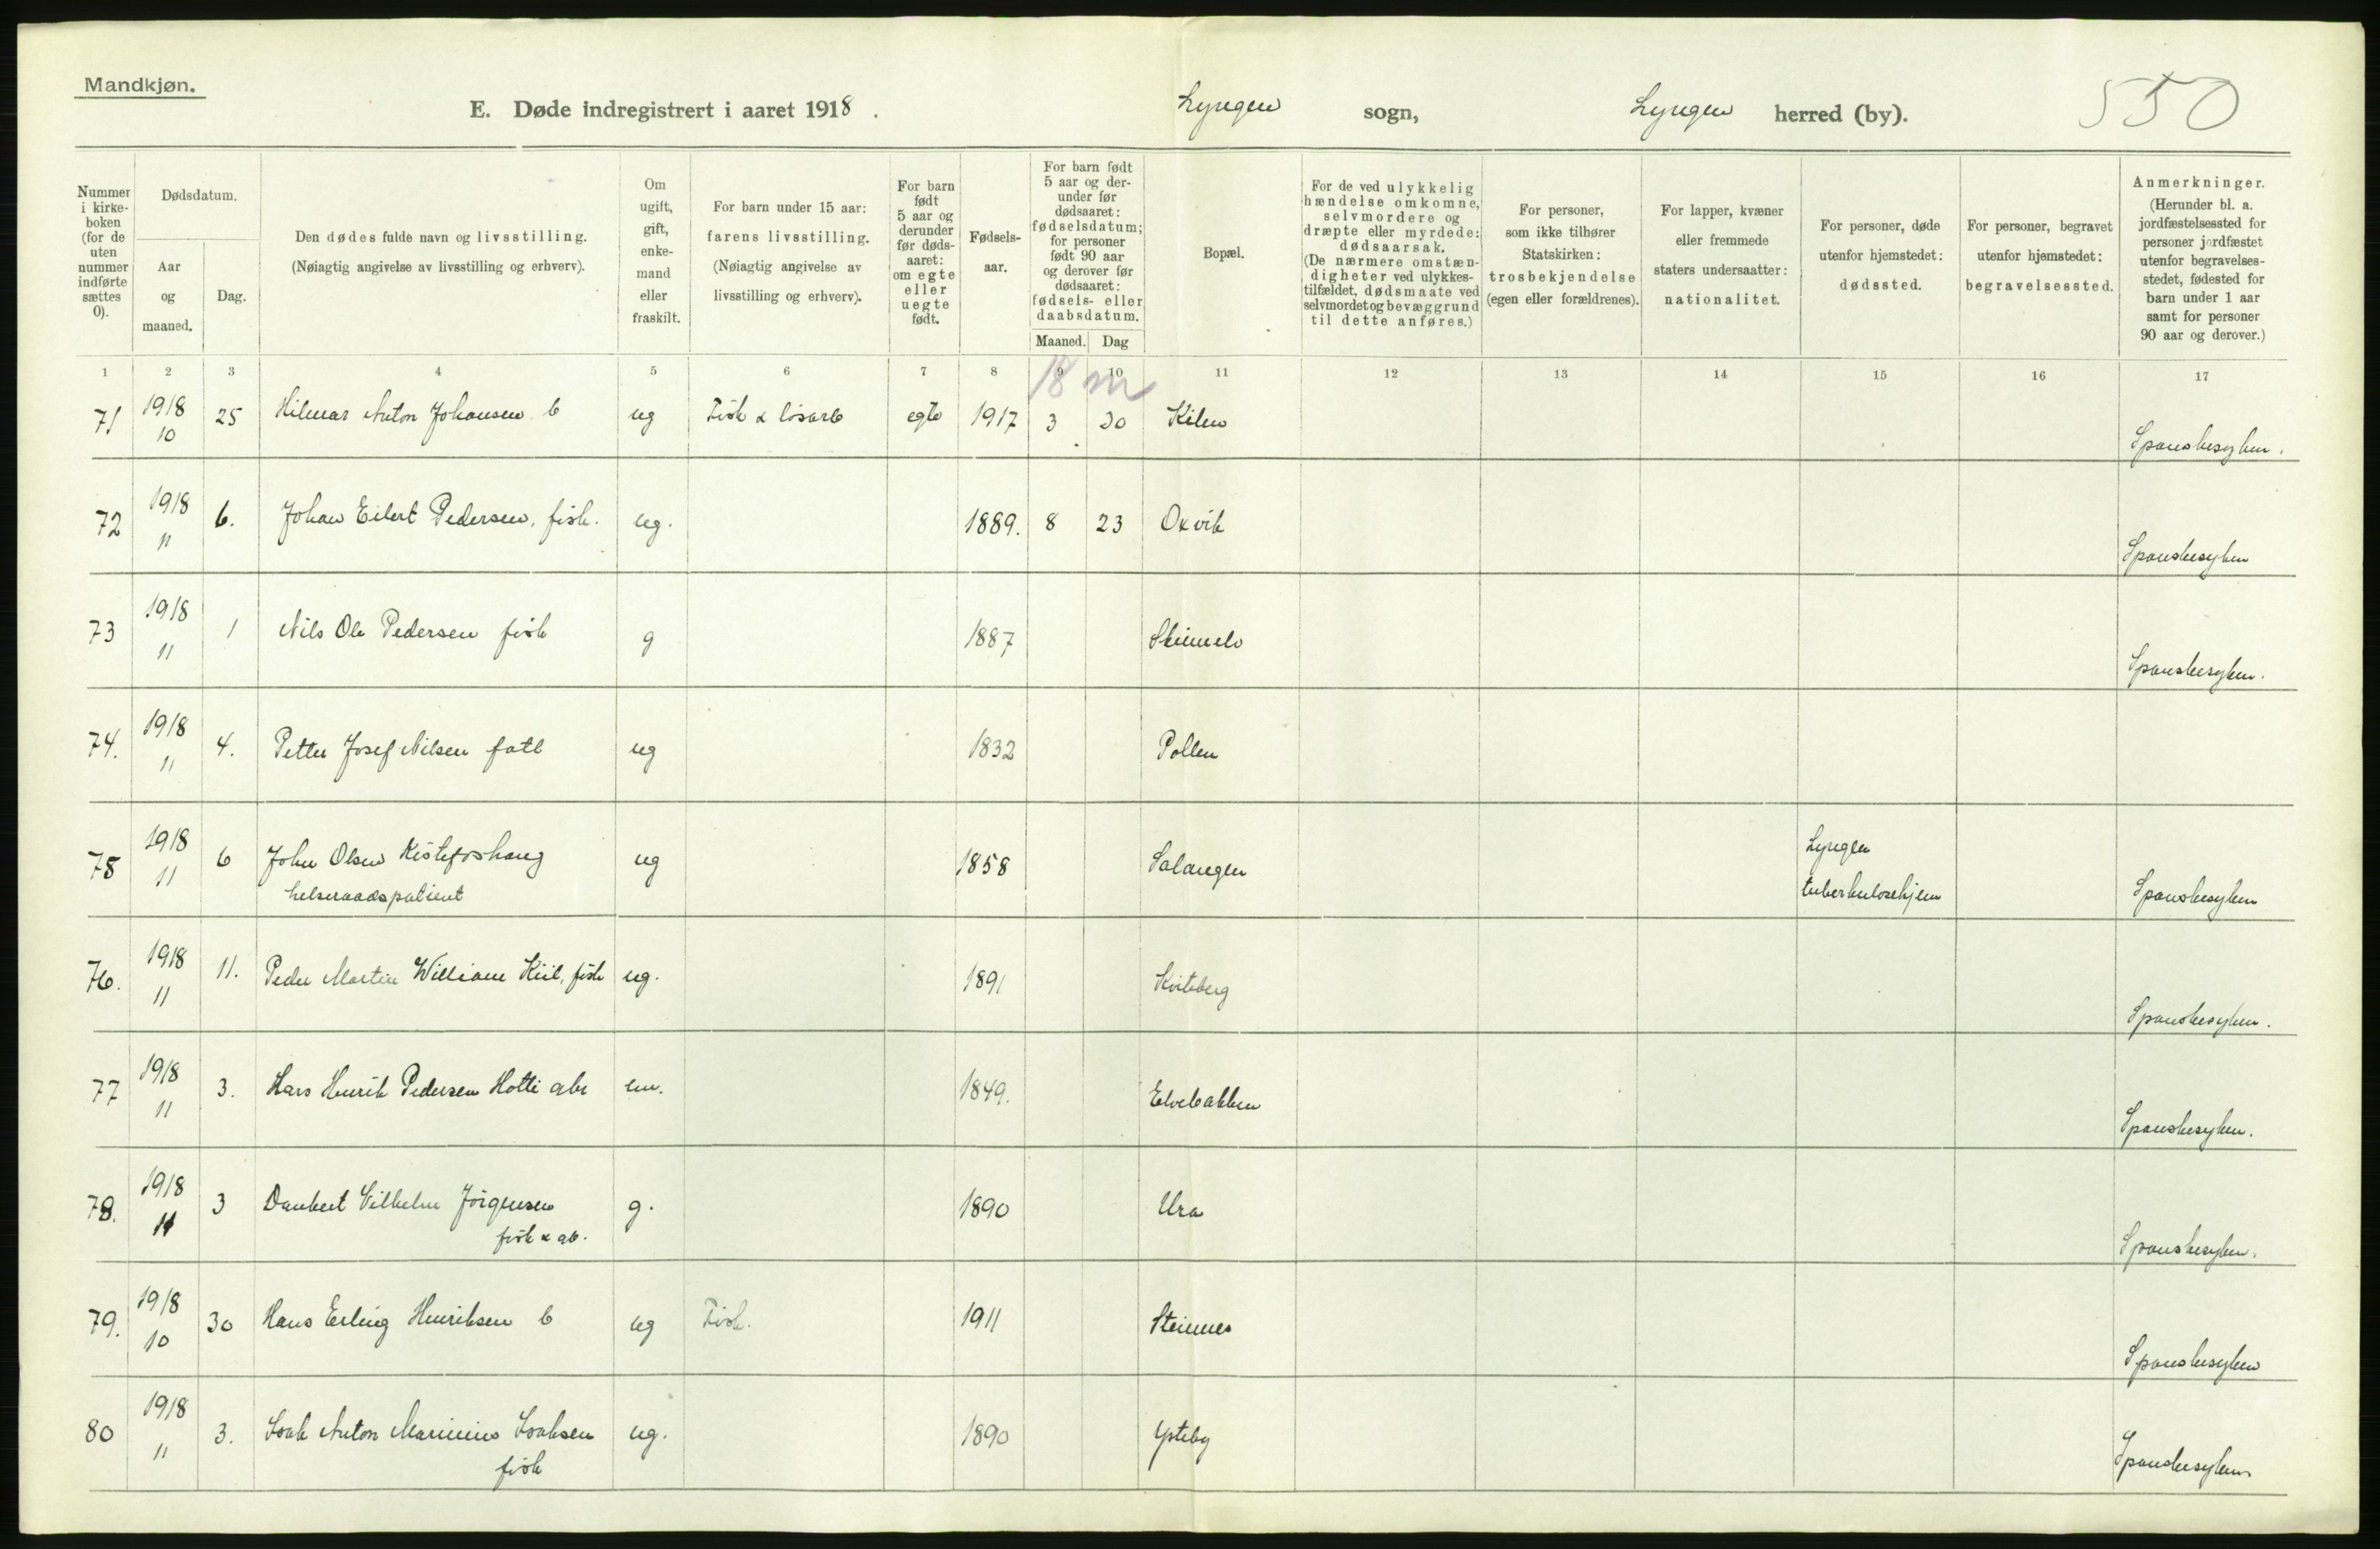 Mandkjøn.
E. Døde indregistrert i aaret 1918.
Lyngen sogn, Lyngen herred (by).
550
Nummer i kirkeboken (for de uten nummer indførte sættes 0).
Dødsdatum.
Aar og maaned.
Dag.
Den dødes fulde navn og livsstilling.
(Nøiagtig angivelse av livsstilling og erhverv).
Om ugift, gift, enkemand eller fraskilt.
For barn under 15 aar:
farens livsstilling.
(Nøiagtig angivelse av livsstilling og erhverv).
For barn født 5 aar og derunder før dødsaaret: om egte eller uegte født.
Fødselsaar.
For barn født 5 aar og derunder før dødsaaret: fødselsdatum; for personer født 90 aar og derover før dødsaaret: fødsels- eller daabsdatum.
Maaned. Dag
Bopæl.
For de ved ulykkelig hændelse omkomne, selvmordere og dræpte eller myrdede: dødsaarsak. (De nærmere omstændigheter ved ulykkestilfældet, dødsmaate ved selvmordet og bevæggrund til dette anføres.)
For personer, som ikke tilhører Statskirken: trosbekjendelse (egen eller forældrenes).
For lapper, kvæner eller fremmede staters undersaatter: nationalitet.
For personer, døde utenfor hjemstedet: dødssted.
For personer, begravet utenfor hjemstedet: begravelsessted.
Anmerkninger. (Herunder bl. a. jordfæstelsessted for personer jordfæstet utenfor begravelsesstedet, fødested for barn under 1 aar samt for personer 90 aar og derover.)
1 2 3 4 5 6 7 8 9 10 11 12 13 14 15 16 17
18 m
71 1918 10 25 Hilmar Anton Johansen b ug Fisk & løsarb egte 1917 3 30 Kilen Spanskesyken.
72 1918 11 6. Johan Eilert Pedersen, fisk. ug. 1889. 8 23 Oxvik Spanskesyken
73 1918 11 1 Nils Ole Pedersen fisk g 1887 Spanskesyken.
74. 1918 11 4. Petter Josef Nilsen fatt ug 1832 Pollen
75 1918 11 6 John Olsen Kistefoshaug ug 1858 Salangen Lyngen
helseraadspatient tuberkulosehjem Spanskesyken
76. 1918 11 11. Peder Martin William Kiil, fisk ug. 1891 Kviteberg Spanskesyken.
77 1918 11 3. Hans Henrik Pedersen Hotti gbr em. 1849. Elvebakken Spanskesyken.
78. 1918 11 3 Danbert Vilhelm Jörgensen g. 1890 Ura
fisk & gb. Spanskesyken.
79. 1918 10 30 Hans Erling Henriksen b ug Fisk. 1911 Steinnes Spanskesyken
80 1918 11 3. Isak Anton Marinius Isaksen ug. 1890 Ysteby
fisk Spanskesyken